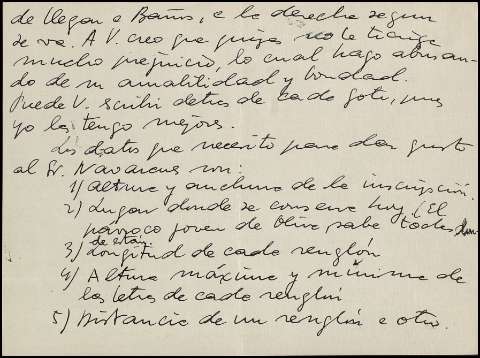 de llegar a Baños, a la derecha segun
se va. A V. creo que quizás no le cause
mucho prejuicio, lo cual hago abusan-
do de su amabilidad y bondad.
Puede V. escribir detras de cada foto, pues
yo las tengo mejores.
Los datos que necesito para dar gusto
al Sr. Navascues son:
1) altura y anchura de la inscripción.
2) Lugar donde se conserva hoy (El
párroco joven de Oliva sabe todos
de estas
3) Longitud de cada renglón
4) Altura máxima y mínima de
las letras de cada renglón
5) Distancia de un renglón a otro.